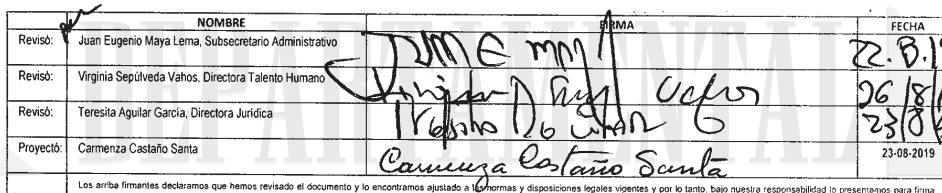 NOMBRE FIRMA FECHA
Revisó: Juan Eugenio Maya Lema, Subsecretario Administrativo 22.8.1
Revisó: Virginia Sepúlveda Vahos, Directora Talento Humano 26/8/
Revisó: Teresita Aguilar García, Directora Jurídica 23/8/
Proyectó: Carmenza Castaño Santa Carmenza Castaño Santa 23-08-2019
Los arriba firmantes declaramos que hemos revisado el documento y lo encontramos ajustado a las normas y disposiciones legales vigentes y por lo tanto, bajo nuestra responsabilidad lo presentamos para firma
DEPARTAMENTAL